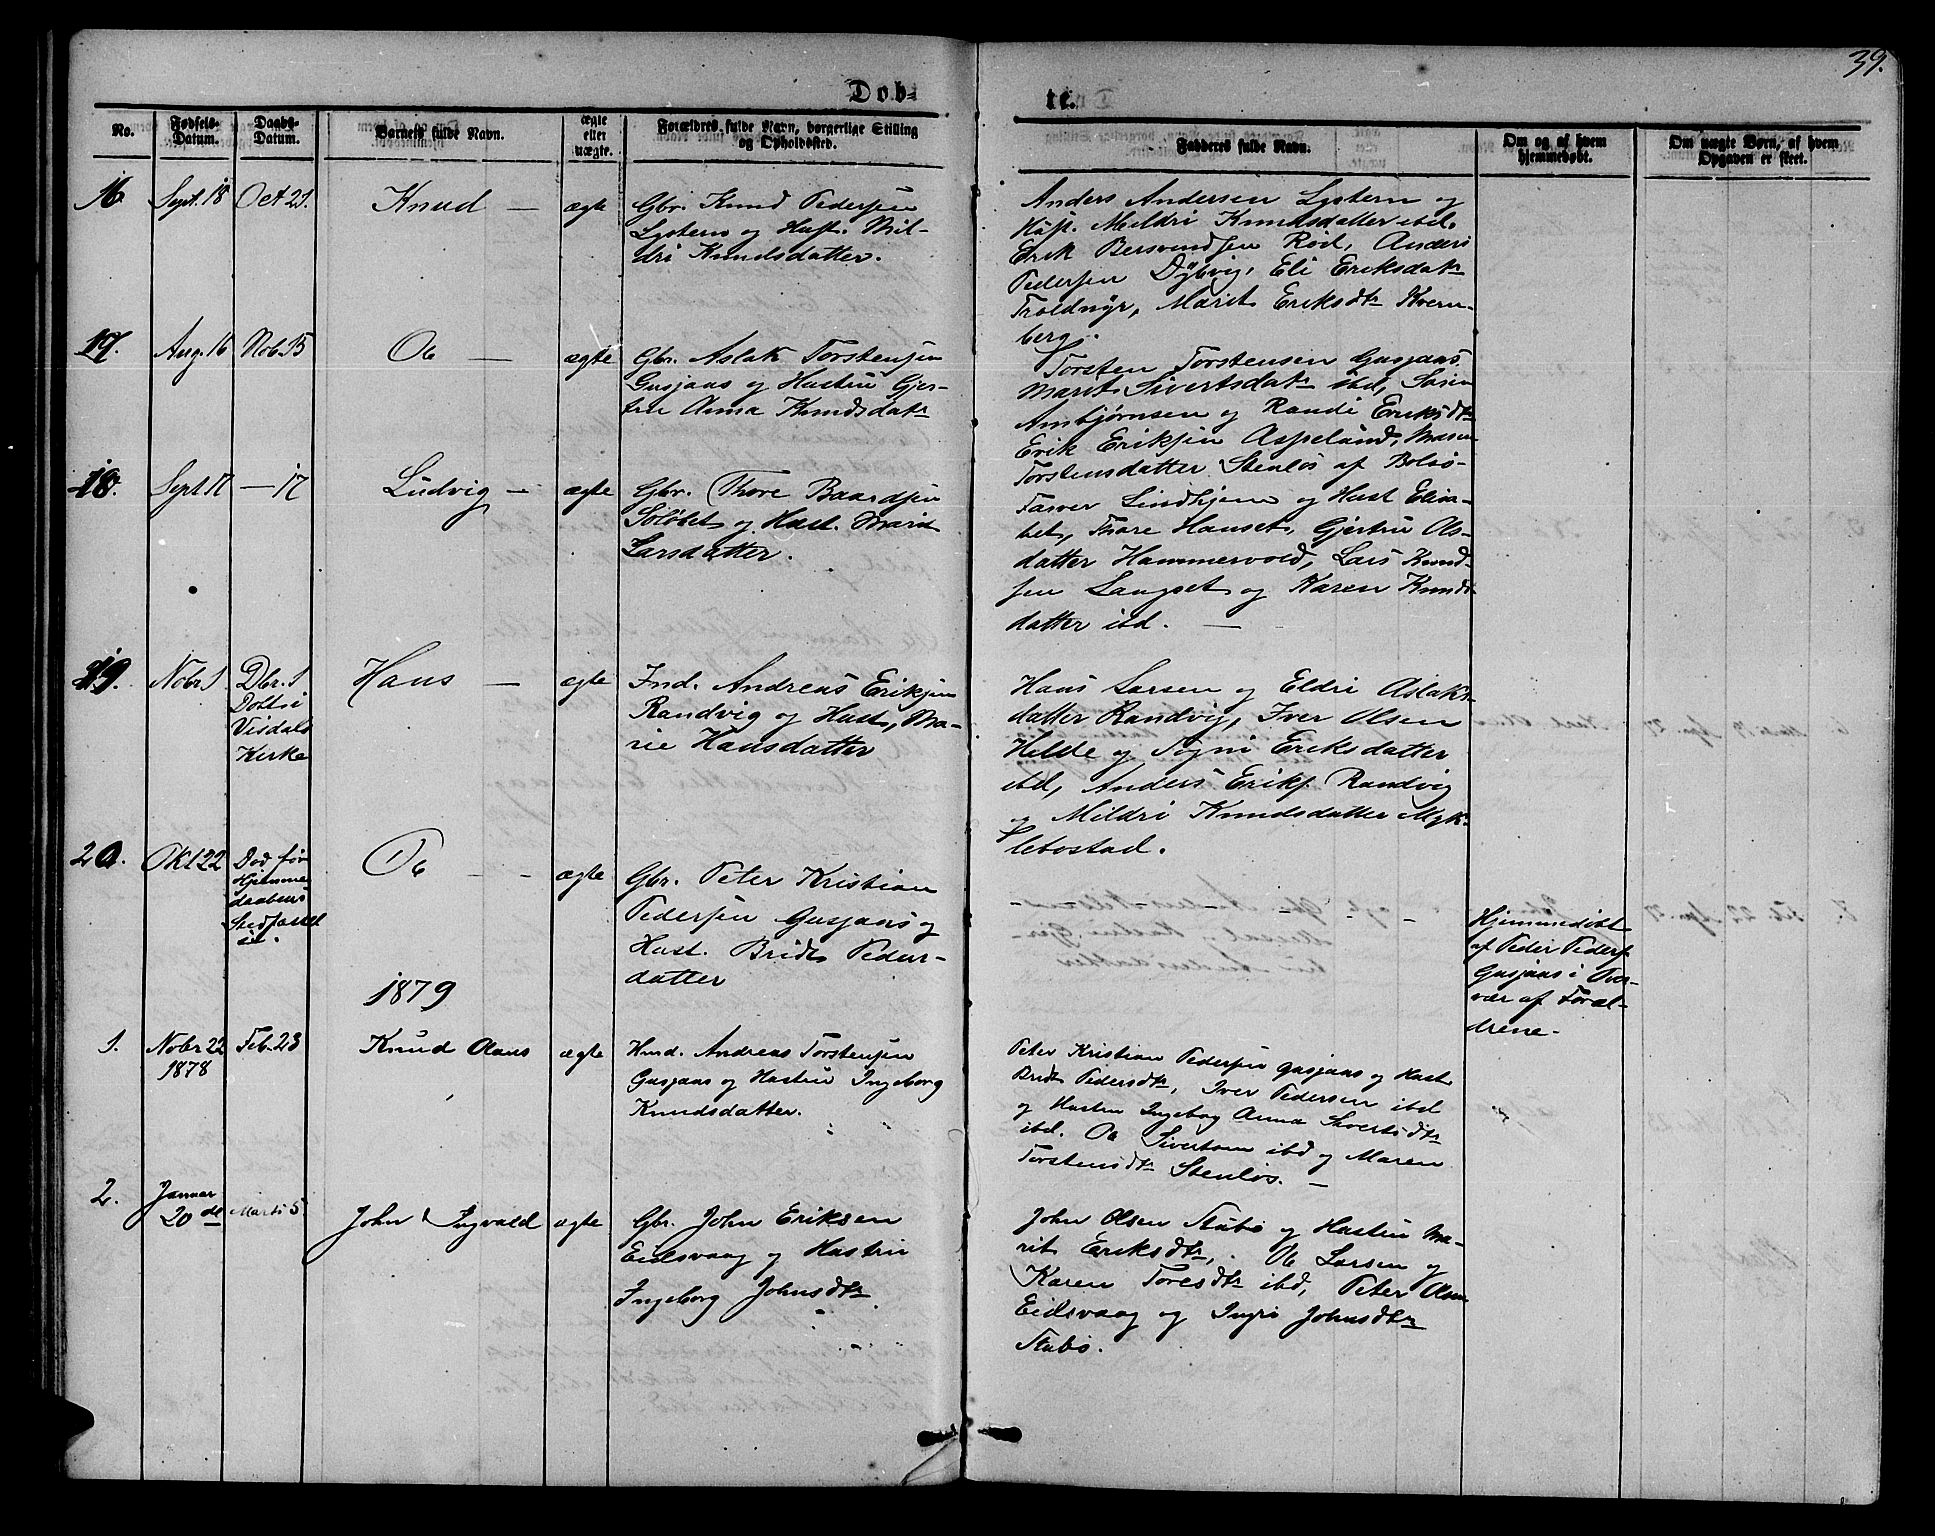 39.
Dob-
te.
No.
Fødsels-
Datum.
Daabs-
Datum.
Barnets fulde Navn.
ægte
eller
uægte.
Forældres fulde Navn, borgerlige Stilling
og Opholdssted.
Fadderes fulde Navn.
Om og af hvem
hjemmedøbt.
Om uægte Børn, af hvem
Opgaven er skeet.
16.
Sept. 18
Oct 21.
Knud —
ægte
Gbr. Knud Pedersen
Lystern og Hust. Mil-
dri Knudsdatter.
Anders Andersen Lystern og
Hust. Mildri Knudsdatter ibd.
Erik Bersvendsen Rød, Anders
Pedersen Dybvig, Eli Eriksdatr
Troldmyr, Marit Eriksdtr Kvern-
berg.
17.
Aug. 16
Nob. 15
Ole —
ægte
Gbr. Aslak Torstensen
Gusjaas og Hustru Gjer-
tru Anna Knudsdatr
Torsten Torstensen Gusjaas
Marit Sivertsdatr ibd,
Ambjørnsen og Randi Eriksdtr
Erik Eriksen Aspelund, Maren
Torstensdatter Stenløs af Bolsø-
18.
Sept 17
— 17
Ludvig —
ægte
Gbr. Thore Baardsen
Sølsbet og Hust. Marit
Larsdatter.
Farver Lindhjem og Hust Elisa-
bet, Thore Hanset, Gjertru Ols-
datter Hammervold, Lars Knud-
sen Langset og Karen Knuds-
datter ibd. —
19.
Nobr. 1
Dbr. 1
Døbt i
Visdals
Kirke
Hans —
ægte
Ind. Andreas Eriksen
Randvig og Hust, Ma-
rie Hansdatter
Hans Larsen og Eldri Aslaks-
datter Randvig, Iver Olsen
Helde og Eriksdatter
ibd, Anders Eriks. Randvig
og Mildri Knudsdatter Myk-
lebostad.
20.
Okt 22
Død før
Hjemme-
daabens
Stedfæstel
se.
Ole - -
ægte
Gbr. Peter Kristian
Pedersen Gusjaas og
Hust. Bridt Peders-
datter
Hjemmedøbt
af Peder Peders.
Gusjaas i Over-
vær af Foræl-
drene-
1879
1.
Nobr 22
1878
Feb. 23
Knud Olaus
ægte
Hmd. Andreas Torstensen
Gusjaas og Hustru Ingeborg
Knudsdatter.
Peter Kristian Pedersen Gusjaas og Hust
Bridt Pedersdtr, Iver Pedersen ibd
og Hustru Ingeborg Anna Sivertsdtr
ibd. Ole Sivertsen ibd og Maren
Torstensdtr Stenløs. —
2.
Januar
20de
Marts 5
John Ingvald
ægte
Gbr. John Eriksen
Eidsvaag og Hustru
Ingeborg Johnsdtr
John Olsen Stubø og Hustru Ma-
rit Eriksdtr, Ole Larsen og
Karen Toresdtr ibd, Peter Olsen
Eidsvaag og Johnsdtr
Stubø.